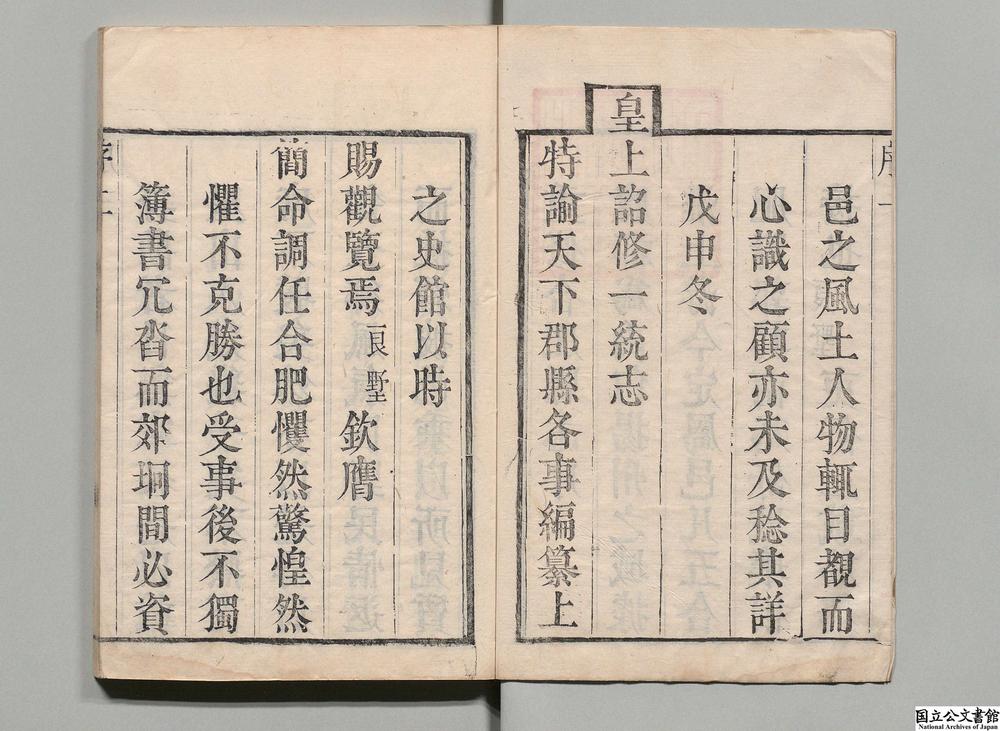 邑之風土人物輒目覩而
心識之顧亦未及稔其詳
戊申冬
皇上詔修一統志
特諭天下郡縣各事編纂上
之史館以時
賜觀覽焉良墅欽膺
簡命調任合肥戄然驚惶然
懼不克勝也受事後不獨
簿書冗沓而郊坰間必資
国立公文書館
National Archives of Japan